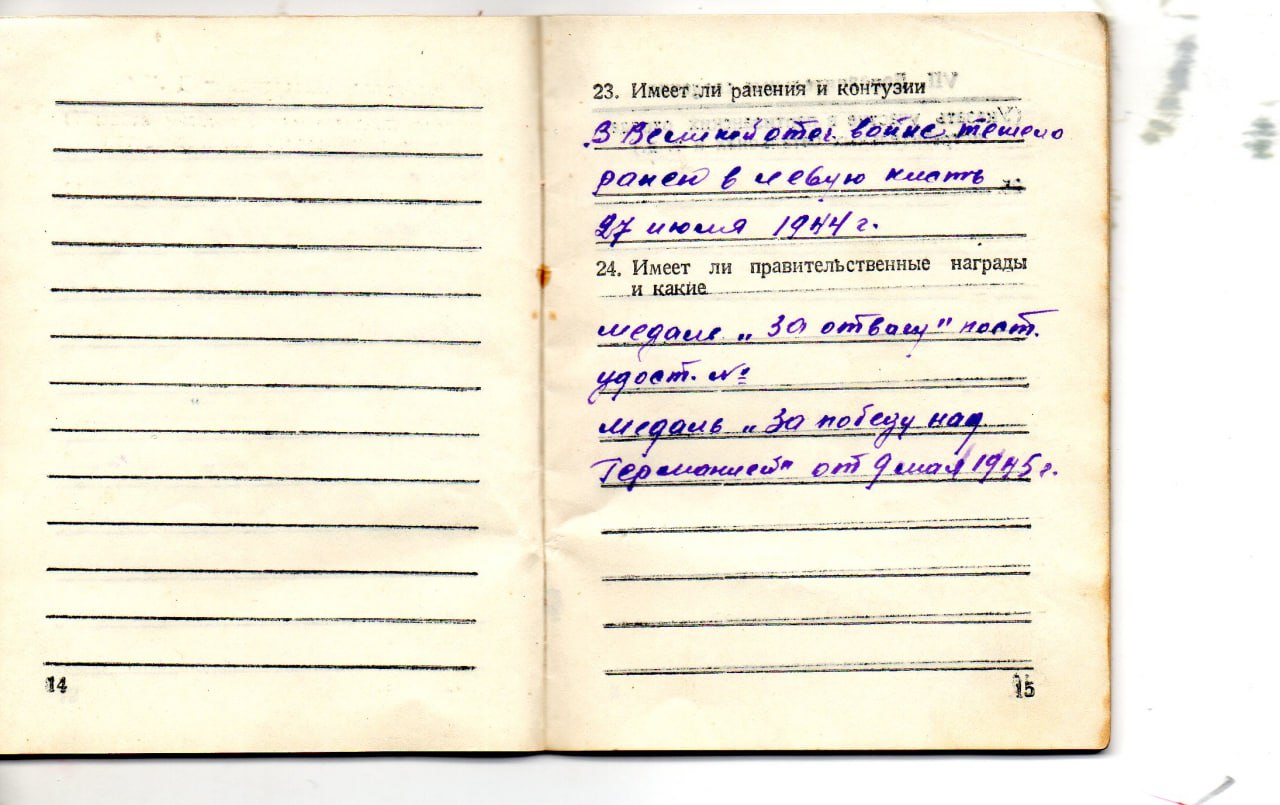 23. Имеет ли ранения и контузии
В Великой отеч. войне тяжело
ранен в левую кисть
27 июля 1944 г.
24. Имеет ли правительственные награды
и какие
медаль „За отвагу" пост.
удост. №
медаль „За победу над
Германией" от 9 мая 1945 г.
14
15